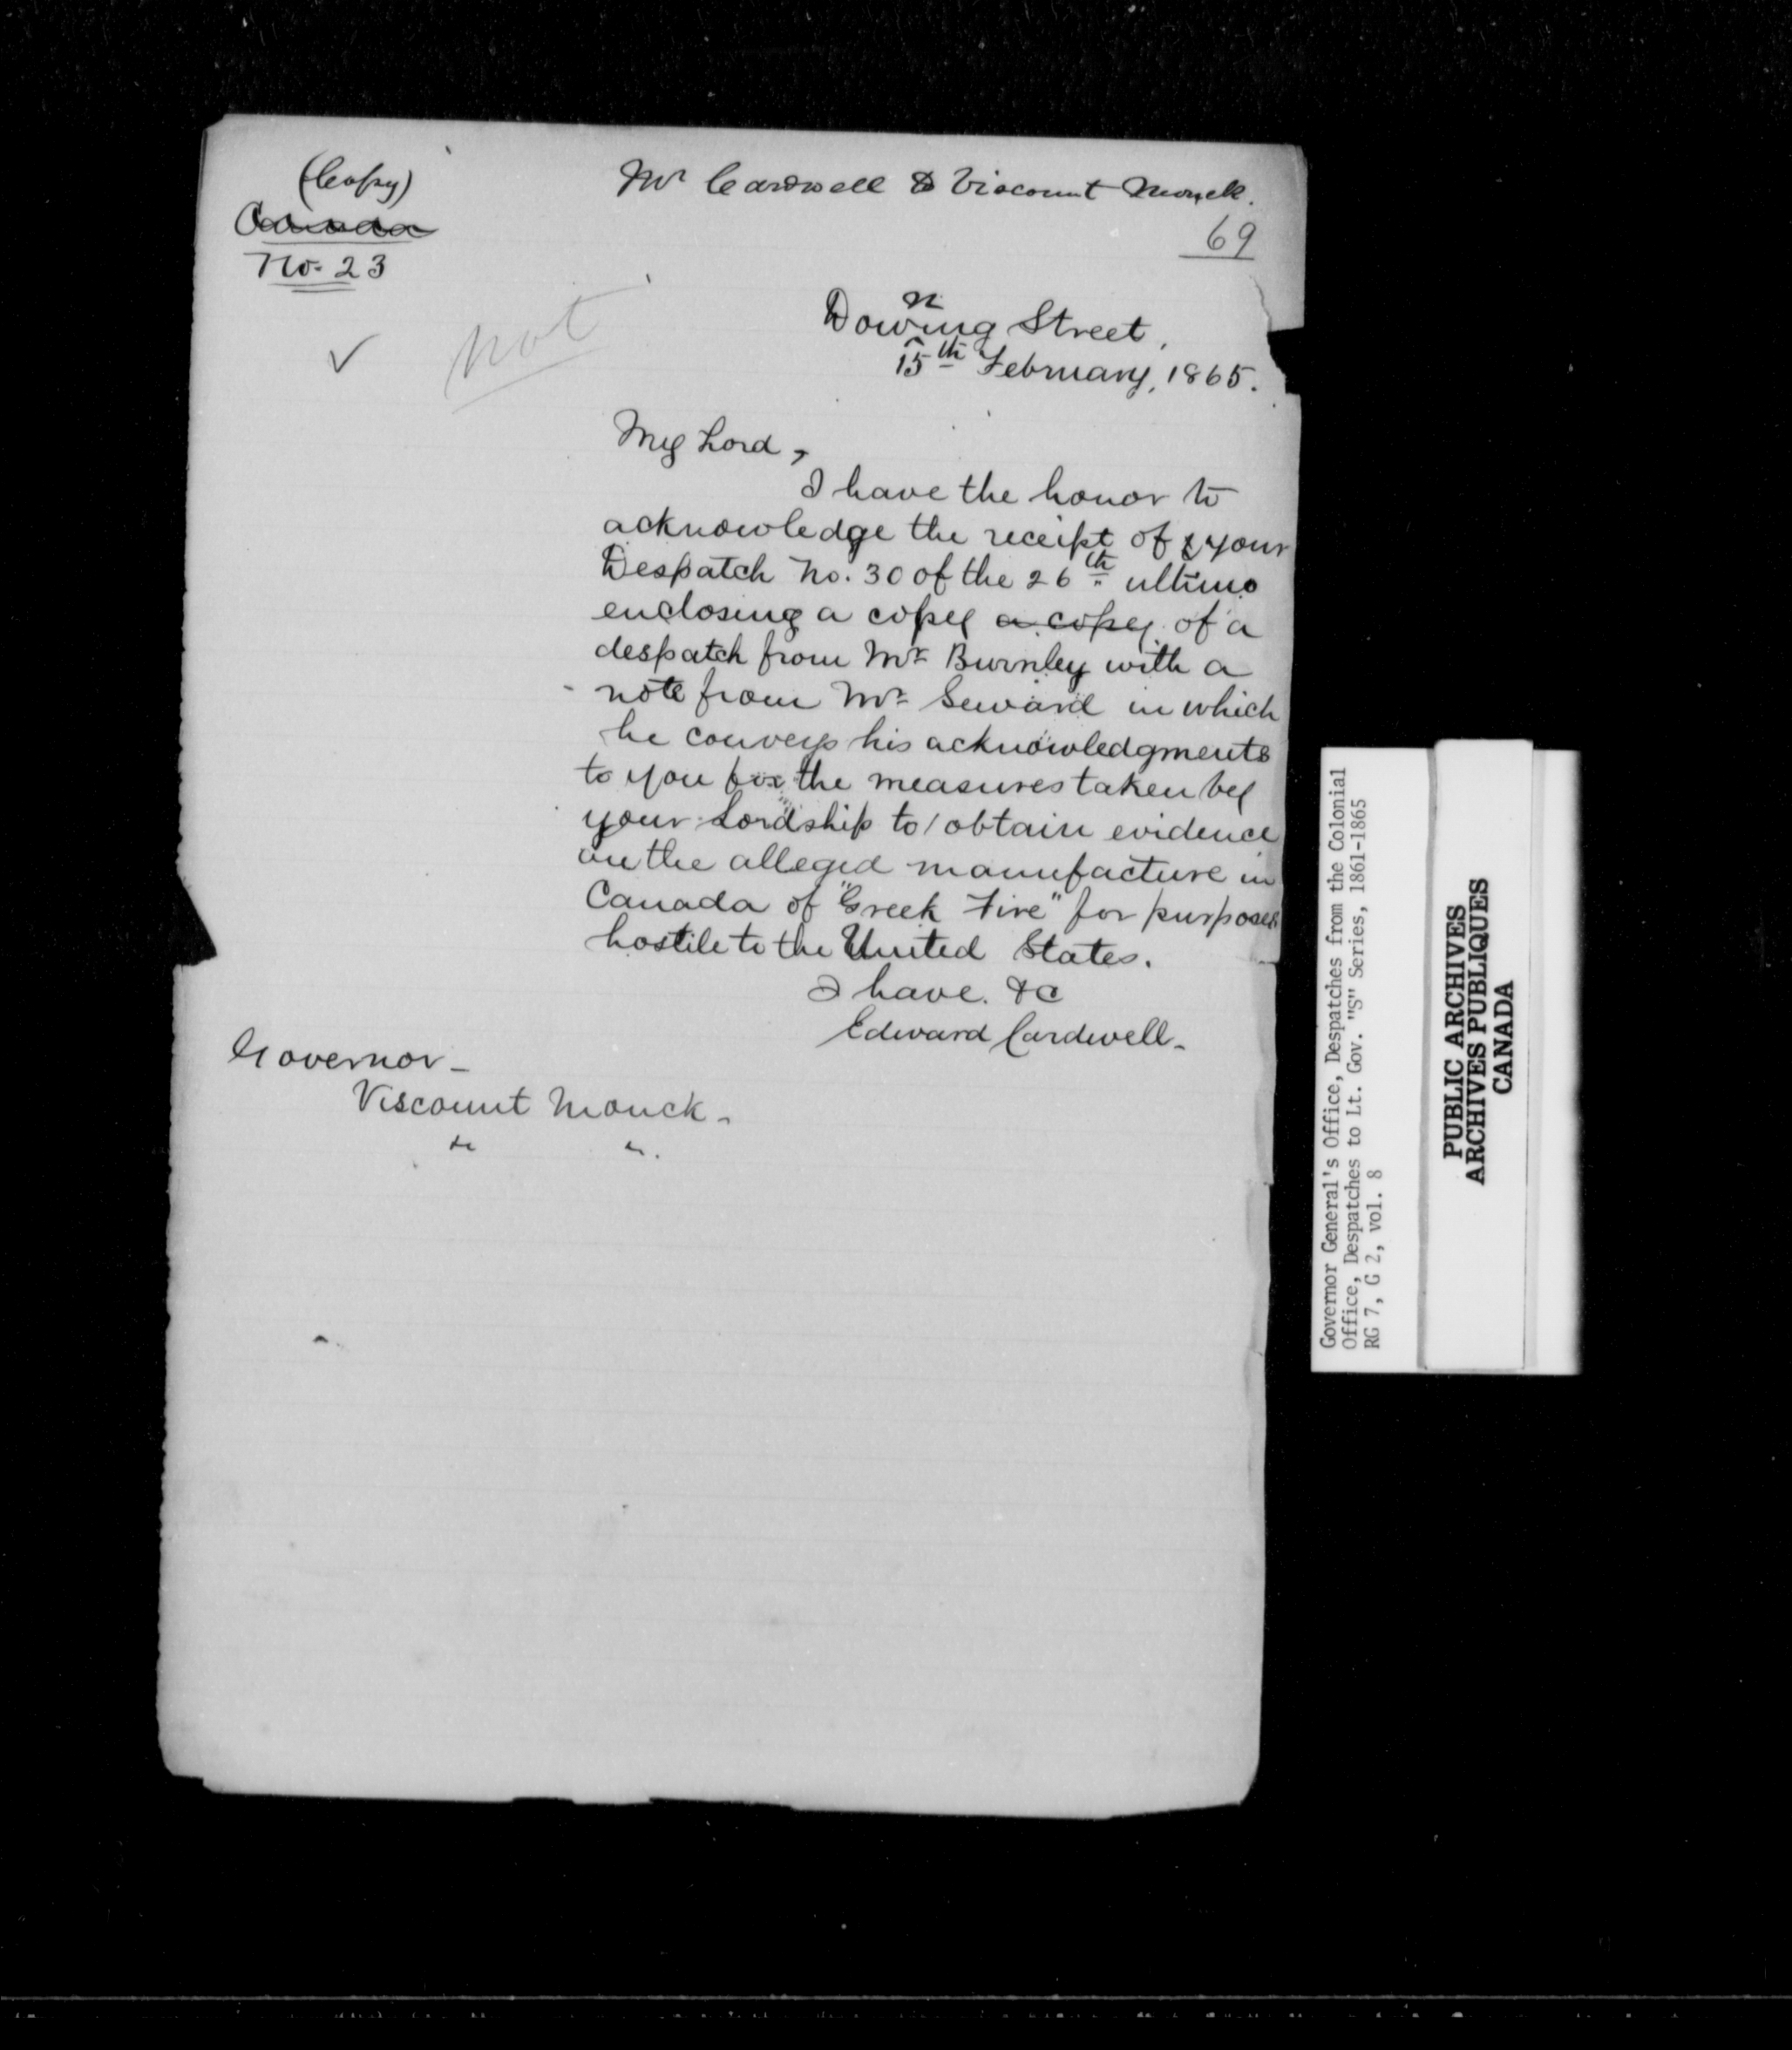 (Copy)
Mr Cardwell to Viscount Monck.
Canada
69
No. 23
not
Downing Street,
15th February, 1865.
My Lord,
I have the honor to
acknowledge the receipt of your
Despatch No. 30 of the 26th ultimo
enclosing a copy a copy of a
despatch from Mr Burnley with a
note from Mr Seward in which
he conveys his acknowledgments
to you for the measures taken by
your Lordship to obtain evidence
on the alleged manufacture in
Canada of "Greek Fire" for purposes
hostile to the United States.
I have &c
Edward Cardwell-
Governor-
Viscount Monck-
Governor General's Office, Despatches from the Colonial
Office, Despatches to Lt. Gov. "S" Series, 1861-1865
RG 7, G 2, vol. 8
PUBLIC ARCHIVES
ARCHIVES PUBLIQUES
CANADA